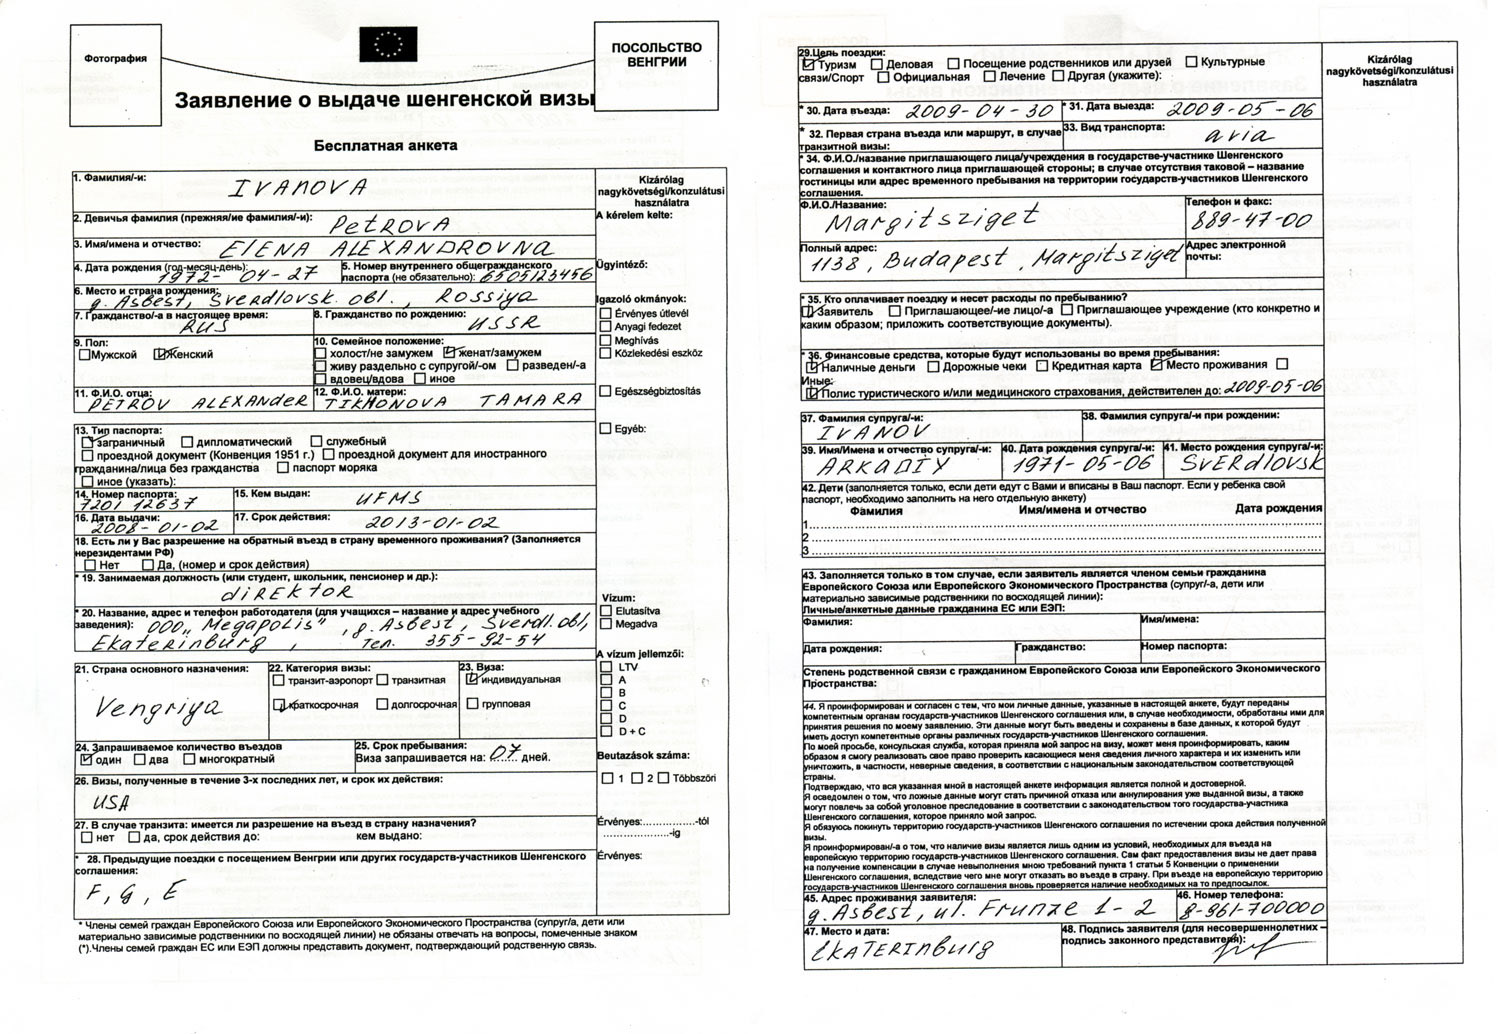 Фотография
ПОСОЛЬСТВО
ВЕНГРИИ
Заявление о выдаче шенгенской визы
Бесплатная анкета
1. Фамилия/-и:
IVANOVA
2. Девичья фамилия (прежняя/ие фамилия/-и):
PetROVA
3. Имя/имена и отчество:
ELENA ALEXANDROVNA
4. Дата рождения (год-месяц-день):
1972-04-27
5. Номер внутреннего общегражданского
паспорта (не обязательно): 6505123456
6. Место и страна рождения:
g. Asbest, Sverdlovsk. obl., Rossiya
7. Гражданство/-а в настоящее время:
RUS
8. Гражданство по рождению:
USSR
9. Пол:
Мужской Женский
10. Семейное положение:
холост/не замужем женат/замужем
живу раздельно с супругой/-ом разведен/-а
вдовец/вдова иное
11. Ф.И.О. отца:
PETROV ALEXANDER
12. Ф.И.О. матери:
TIKHONOVA TAMARA
13. Тип паспорта:
заграничный дипломатический служебный
проездной документ (Конвенция 1951 г.) проездной документ для иностранного
гражданина/лица без гражданства паспорт моряка
иное (указать):
14. Номер паспорта:
7201 12637
15. Кем выдан:
UFMS
16. Дата выдачи:
2008-01-02
17. Срок действия:
2013-01-02
18. Есть ли у Вас разрешение на обратный въезд в страну временного проживания? (Заполняется
нерезидентами РФ)
Нет Да, (номер и срок действия)
* 19. Занимаемая должность (или студент, школьник, пенсионер и др.):
diREKtOR
* 20. Название, адрес и телефон работодателя (для учащихся – название и адрес учебного
заведения): ООО „Megapolis", g. Asbest, Sverdl. obl,
Ekaterinburg, Тел. 355-92-54
21. Страна основного назначения:
Vengriya
22. Категория визы:
транзит-аэропорт транзитная
краткосрочная долгосрочная
23. Виза:
индивидуальная
групповая
24. Запрашиваемое количество въездов
один два многократный
25. Срок пребывания:
Виза запрашивается на: 07 дней.
26. Визы, полученные в течение 3-х последних лет, и срок их действия:
USA
27. В случае транзита: имеется ли разрешение на въезд в страну назначения?
нет да, срок действия до: кем выдано:
* 28. Предыдущие поездки с посещением Венгрии или других государств-участников Шенгенского
соглашения:
F, g, E
* Члены семей граждан Европейского Союза или Европейского Экономического Пространства (супруг/а, дети или
материально зависимые родственники по восходящей линии) не обязаны отвечать на вопросы, помеченные знаком
(*).Члены семей граждан ЕС или ЕЭП должны представить документ, подтверждающий родственную связь.
Kizárólag
nagykövetségi/konzulátusi
használatra
A kérelem kelte:
Ügyintéző:
Igazoló okmányok:
Érvényes útlevél
Anyagi fedezet
Meghívás
Közlekedési eszköz
Egészségbiztosítás
Egyéb:
Vízum:
Elutasítva
Megadva
A vízum jellemzői:
LTV
A
B
C
D
D + C
Beutazások száma:
1 2 Többszöri
Érvényes:................-tól
....................-ig
Érvényes:
29.Цель поездки:
Туризм Деловая Посещение родственников или друзей Культурные
связи/Спорт Официальная Лечение Другая (укажите):
* 30. Дата въезда: 2009-04-30
* 31. Дата выезда: 2009-05-06
* 32. Первая страна въезда или маршрут, в случае
транзитной визы:
33. Вид транспорта:
avia
* 34. Ф.И.О./название приглашающего лица/учреждения в государстве-участнике Шенгенского
соглашения и контактного лица приглашающей стороны; в случае отсутствия таковой – название
гостиницы или адрес временного пребывания на территории государств-участников Шенгенского
соглашения.
Ф.И.О./Название:
Margitsziget
Телефон и факс:
889-47-00
Полный адрес:
1138, Budapest, Margitsziget
Адрес электронной
почты:
* 35. Кто оплачивает поездку и несет расходы по пребыванию?
Заявитель Приглашающее/-ие лицо/-а Приглашающее учреждение (кто конкретно и
каким образом; приложить соответствующие документы).
* 36. Финансовые средства, которые будут использованы во время пребывания:
Наличные деньги Дорожные чеки Кредитная карта Место проживания
Иные:
Полис туристического и/или медицинского страхования, действителен до: 2009-05-06
37. Фамилия супруга/-и:
IVANOV
38. Фамилия супруга/-и при рождении:
39. Имя/Имена и отчество супруга/-и:
ARKADIY
40. Дата рождения супруга/-и:
1971-05-06
41. Место рождения супруга/-и:
SVERdLOVSK
42. Дети (заполняется только, если дети едут с Вами и вписаны в Ваш паспорт. Если у ребенка свой
паспорт, необходимо заполнить на него отдельную анкету)
Фамилия Имя/имена и отчество Дата рождения
1
2
3
43. Заполняется только в том случае, если заявитель является членом семьи гражданина
Европейского Союза или Европейского Экономического Пространства (супруг/-а, дети или
материально зависимые родственники по восходящей линии):
Личные/анкетные данные гражданина ЕС или ЕЭП:
Фамилия: Имя/имена:
Дата рождения: Гражданство: Номер паспорта:
Степень родственной связи с гражданином Европейского Союза или Европейского Экономического
Пространства:
44. Я проинформирован и согласен с тем, что мои личные данные, указанные в настоящей анкете, будут переданы
компетентным органам государств-участников Шенгенского соглашения или, в случае необходимости, обработаны ими для
принятия решения по моему заявлению. Эти данные могут быть введены и сохранены в базе данных, к которой будут
иметь доступ компетентные органы различных государств-участников Шенгенского соглашения.
По моей просьбе, консульская служба, которая приняла мой запрос на визу, может меня проинформировать, каким
образом я смогу реализовать свое право проверить касающиеся меня сведения личного характера и их изменить или
уничтожить, в частности, неверные сведения, в соответствии с национальным законодательством соответствующей
страны.
Подтверждаю, что вся указанная мной в настоящей анкете информация является полной и достоверной.
Я осведомлен о том, что ложные данные могут стать причиной отказа или аннулирования уже выданной визы, а также
могут повлечь за собой уголовное преследование в соответствии с законодательством того государства-участника
Шенгенского соглашения, которое приняло мой запрос.
Я обязуюсь покинуть территорию государств-участников Шенгенского соглашения по истечении срока действия полученной
визы.
Я проинформирован/-а о том, что наличие визы является лишь одним из условий, необходимых для въезда на
европейскую территорию государств-участников Шенгенского соглашения. Сам факт предоставления визы не дает права
на получение компенсации в случае невыполнения мною требований пункта 1 статьи 5 Конвенции о применении
Шенгенского соглашения, вследствие чего мне могут отказать во въезде в страну. При въезде на европейскую территорию
государств-участников Шенгенского соглашения вновь проверяется наличие необходимых на то предпосылок.
45. Адрес проживания заявителя:
g. Asbest, ul. Frunze 1-2
46. Номер телефона:
8-961-700000
47. Место и дата:
EKATERINBURG
48. Подпись заявителя (для несовершеннолетних –
подпись законного представителя):
Kizárólag
nagykövetségi/konzulátusi
használatra